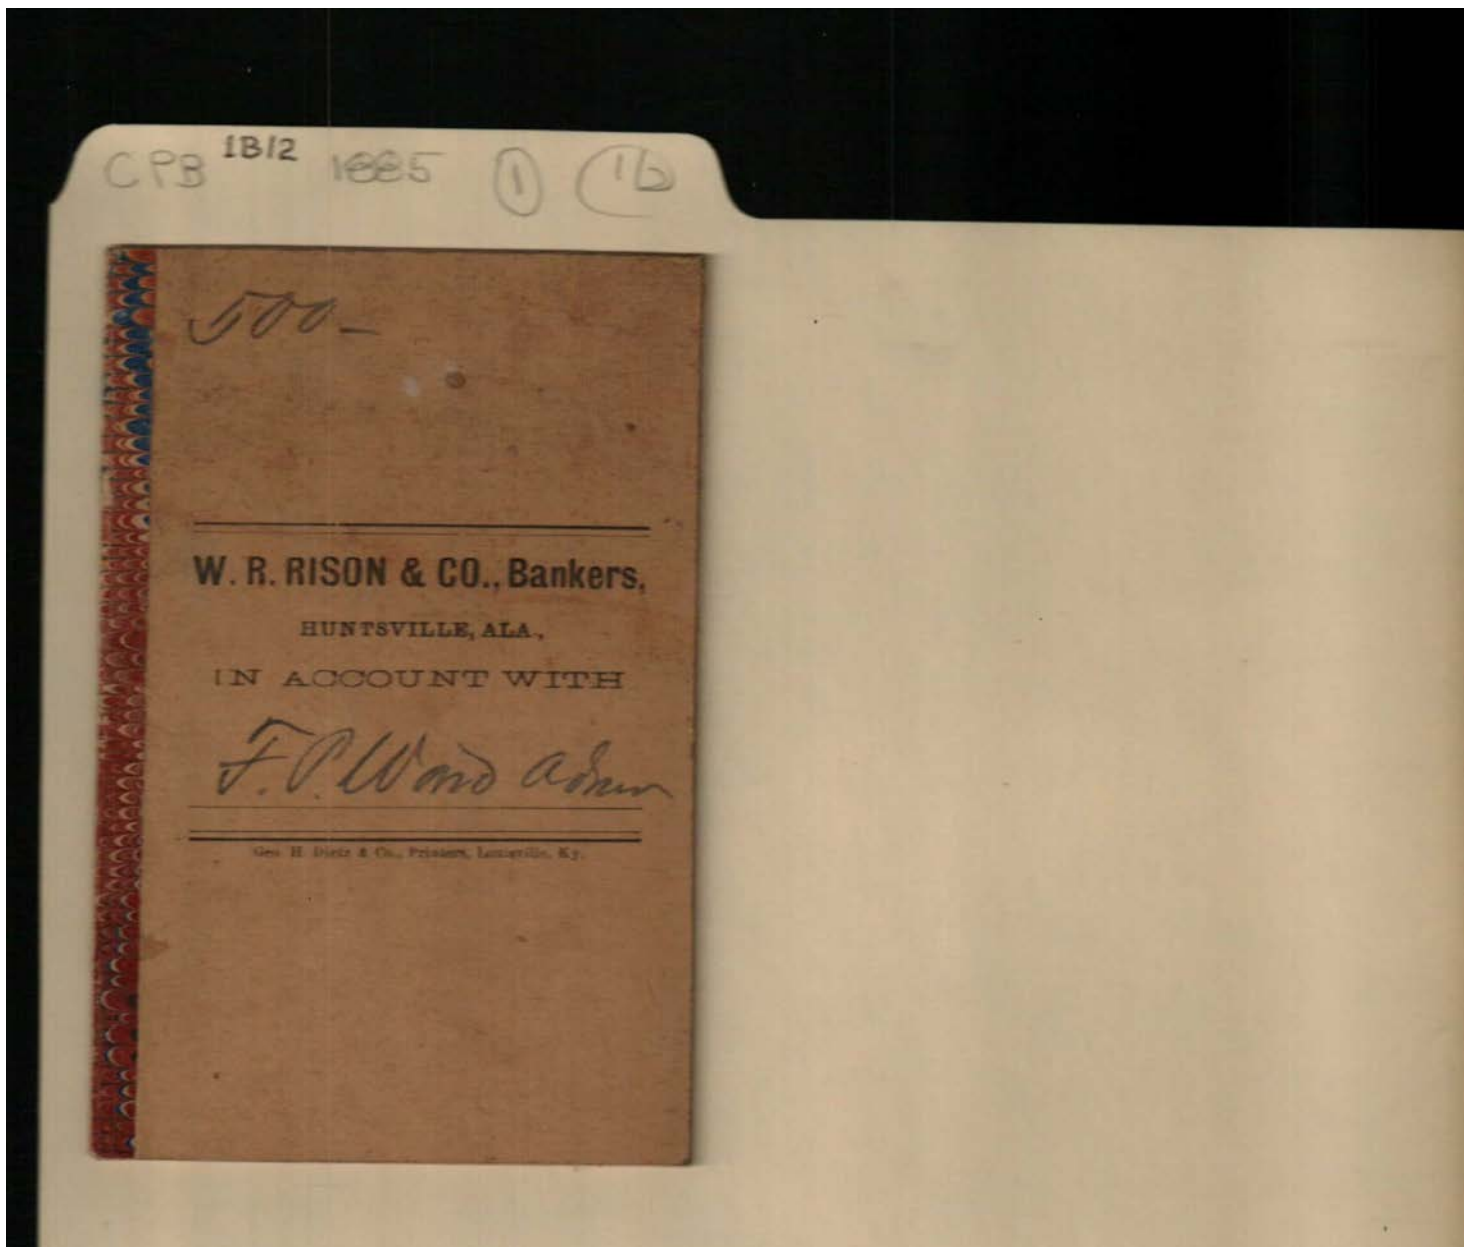 CPB 1B12 1885 1 1b
500-
W. R. RISON & CO., Bankers,
HUNTSVILLE, ALA.,
IN ACCOUNT WITH
F. P. Ward Admr
Geo. H. Dietz & Co., Printers, Louisville, Ky.